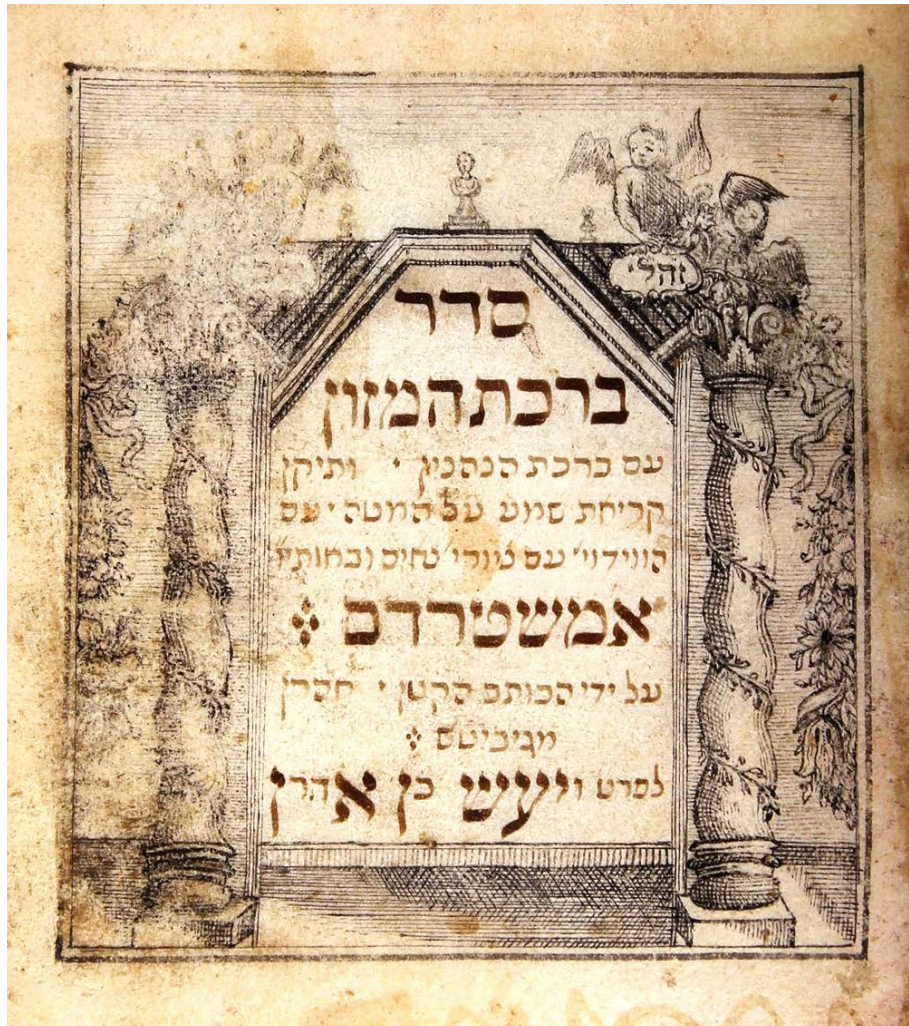 זהלי
סדר
ברכת המזון
עם ברכת הנהנין ׳ ותיקן
קריאת שמע על המטה ׳ עם
הווידוי׳ עם ציורי׳ נאים
אמשטרדם
על ידי הכותב הקטן ׳ אהרן
מגיביטש
לפרט ויעש כן אהרן